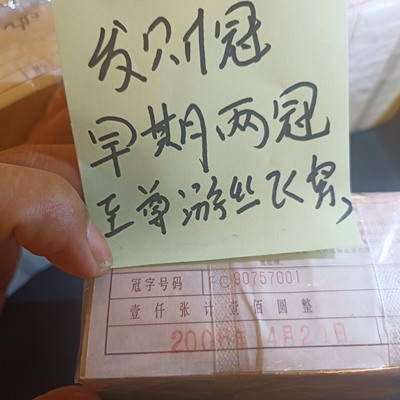 发财冠
早期两冠
至尊游丝飞
冠字号码 FC90757001
壹仟张计壹佰圆整
4月20日